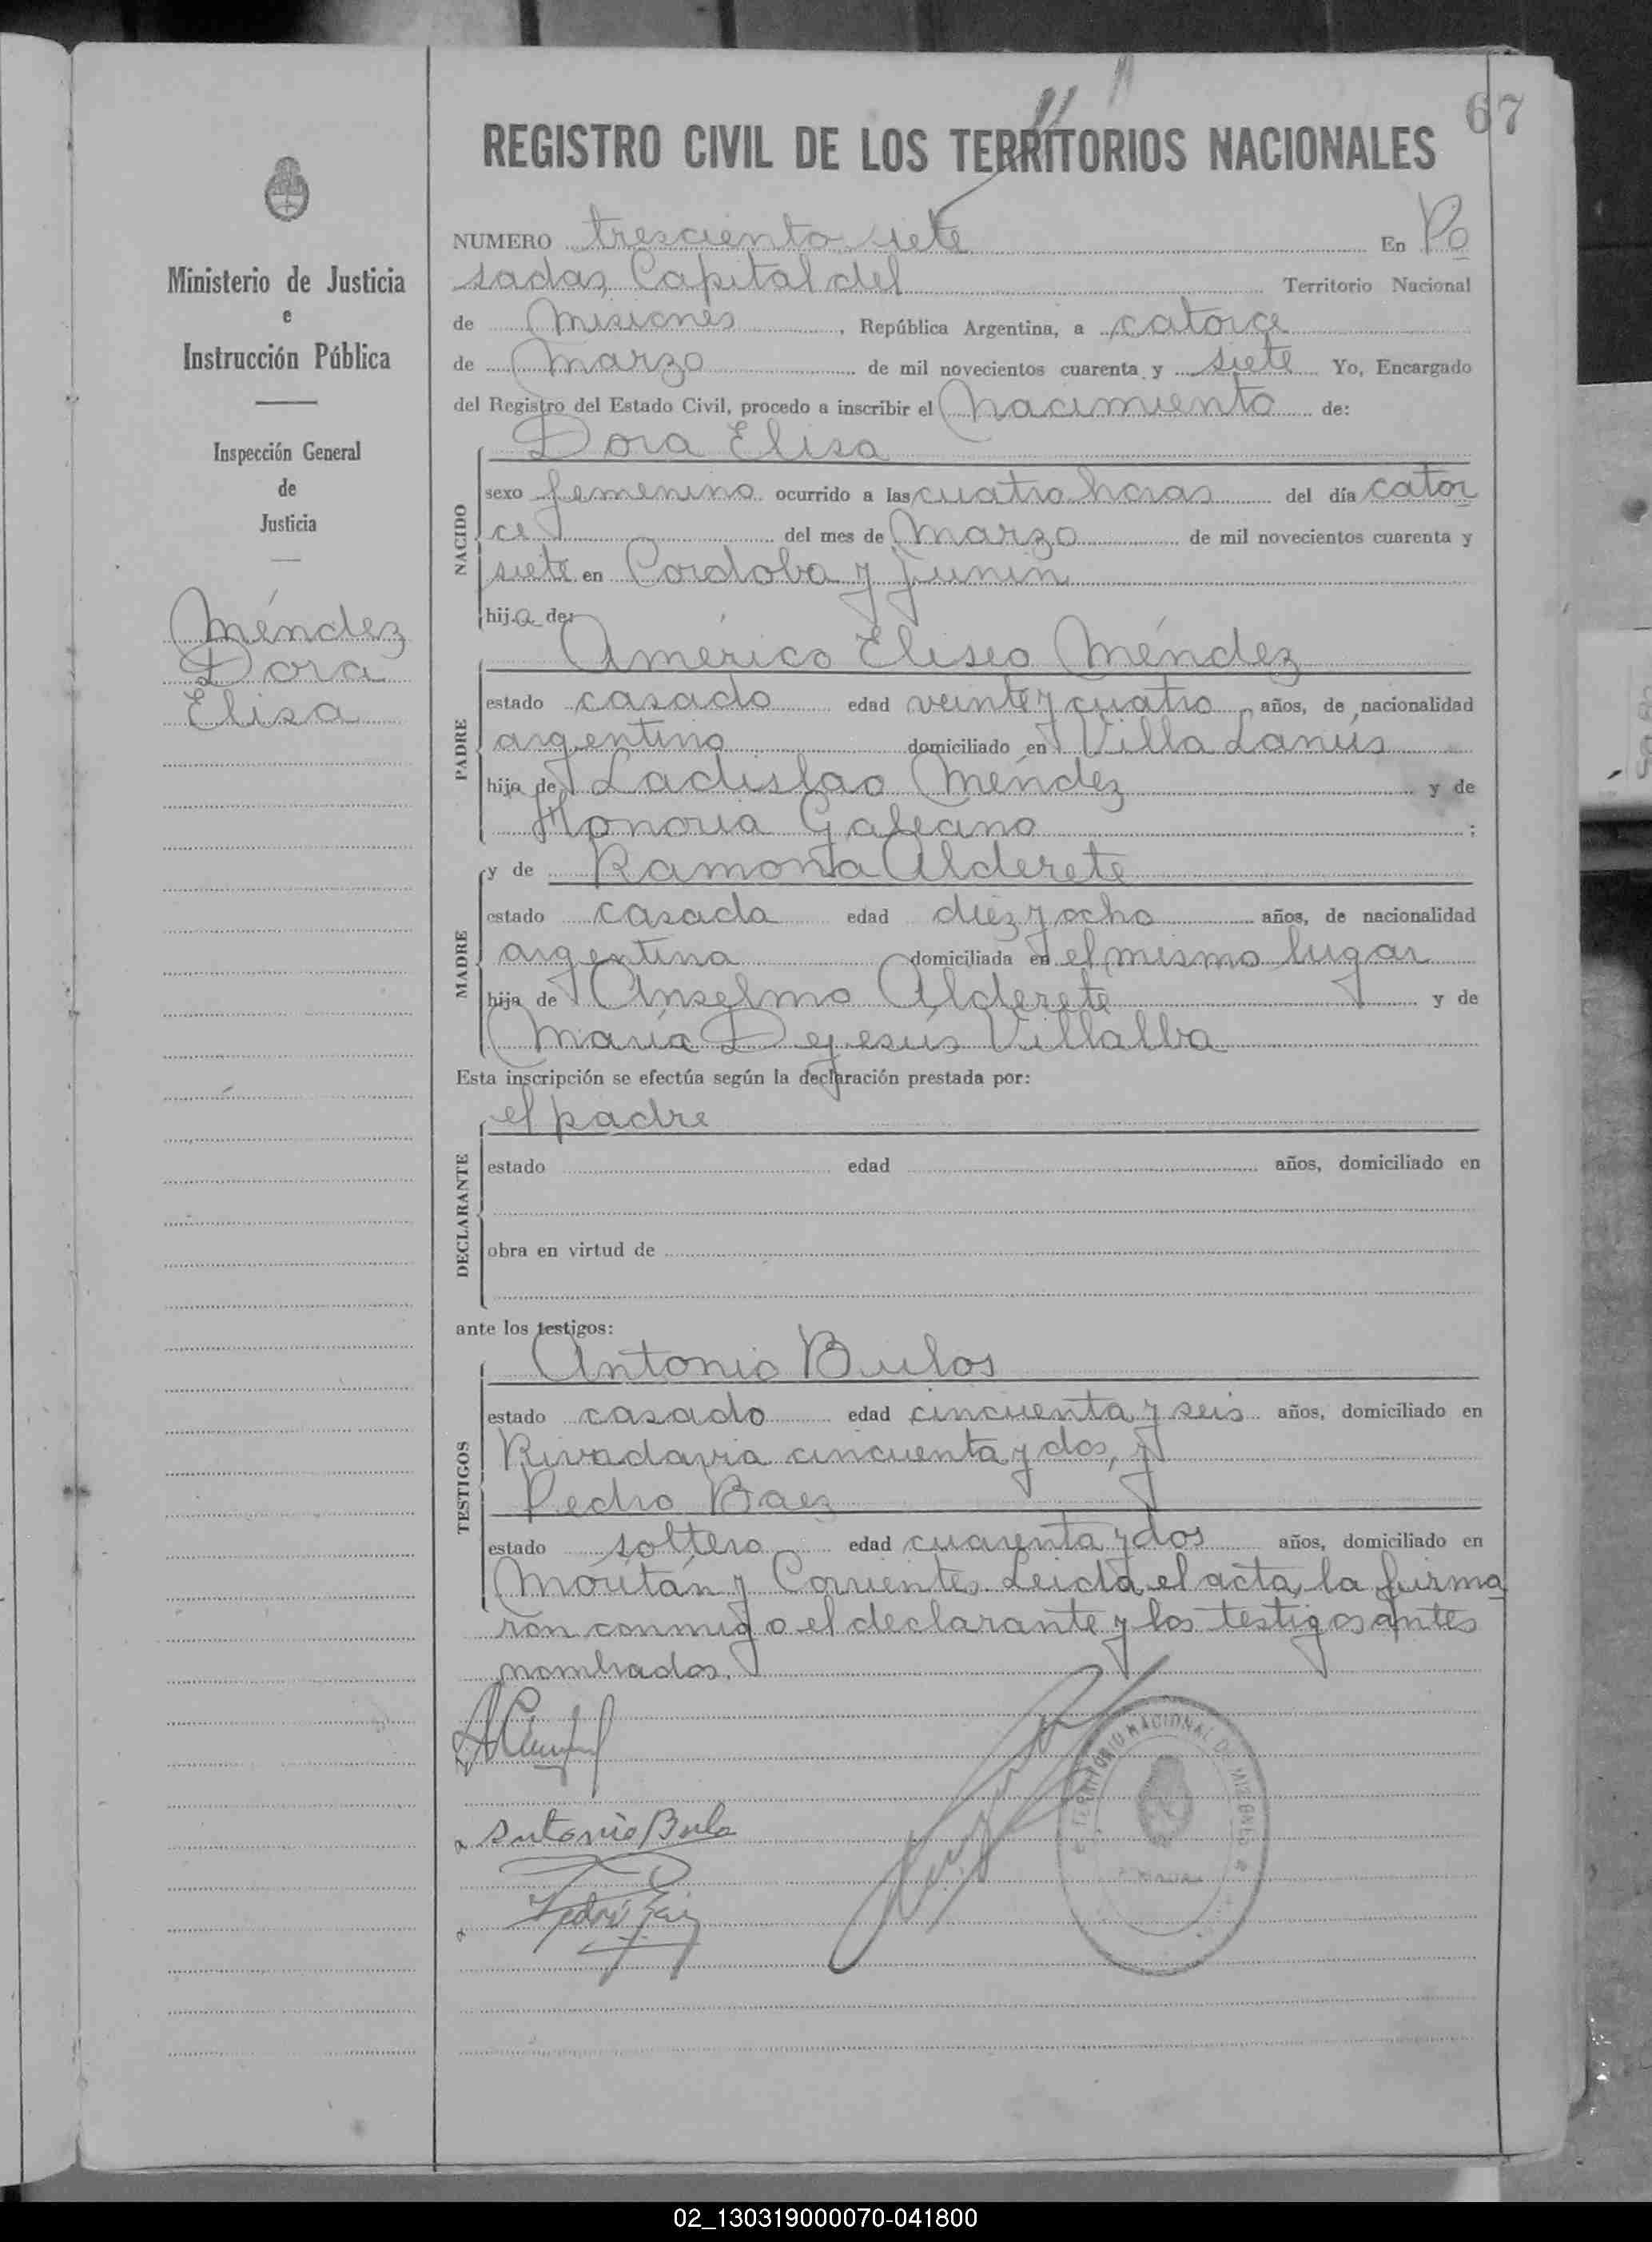 67
REGISTRO CIVIL DE LOS TERRITORIOS NACIONALES
Ministerio de Justicia
e
Instrucción Pública
Inspección General
de
Justicia
Méndez
Dora
Elisa
NUMERO tresciento siete En Po
sadas, Capital del Territorio Nacional
de Misiones, República Argentina, a catorce
de Marzo de mil novecientos cuarenta y siete Yo, Encargado
del Registro del Estado Civil, procedo a inscribir el nacimiento de:
NACIDO
Dora Elisa
sexo femenino ocurrido a las cuatro horas del día cator
ce del mes de Marzo de mil novecientos cuarenta y
siete en Cordoba y Junin
hija de:
PADRE
Américo Eliseo Méndez
estado casado edad veinte y cuatro años, de nacionalidad
argentino domiciliado en Villa Lanús
hijo de Ladislao Méndez y de
Honoria Galeano;
MADRE
y de Ramona Alderete
estado casada edad diez y ocho años, de nacionalidad
argentina domiciliada en el mismo lugar
hija de Anselmo Alderete y de
María Dejesús Villalba
Esta inscripción se efectúa según la declaración prestada por:
DECLARANTE
el padre
estado edad años, domiciliado en
obra en virtud de
ante los testigos:
TESTIGOS
Antonio Bulos
estado casado edad cincuenta y seis años, domiciliado en
Rivadavia cincuenta y dos, y
Pedro Baez
estado soltero edad cuarenta y dos años, domiciliado en
Moritán y Corrientes. Leida el acta, la firma
ron conmigo el declarante y los testigos antes
nombrados.
Antonio Bulo
TERRITORIO NACIONAL DE MISIONES
02_130319000070-041800